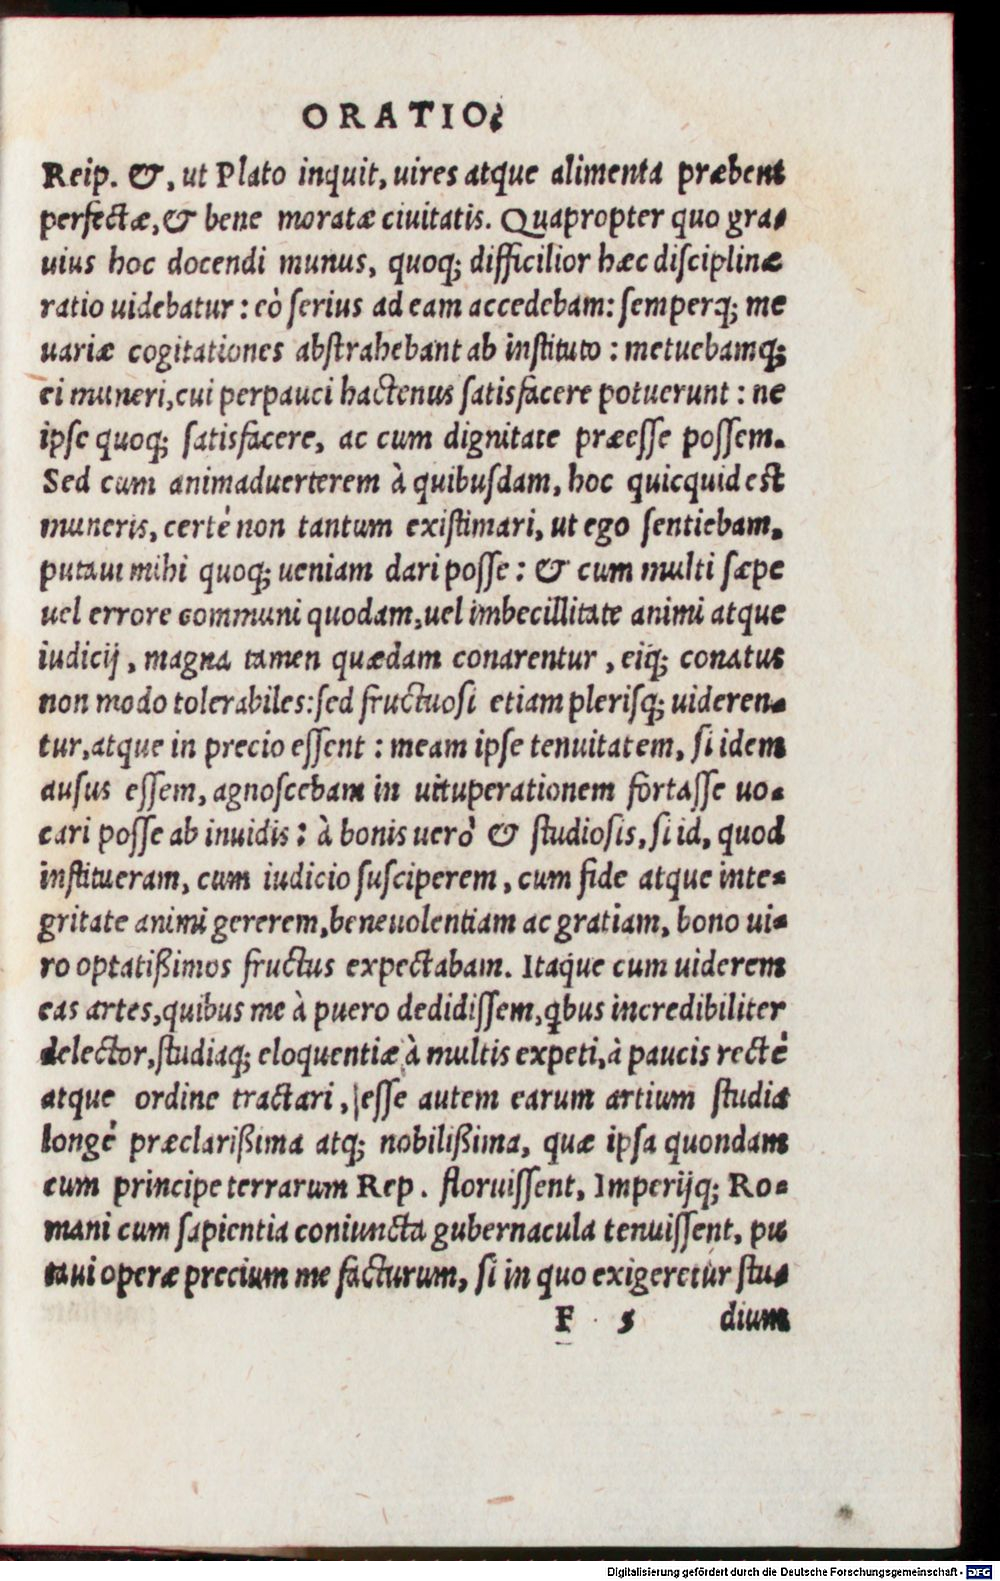 ORATIO.
Reip. &, ut Plato inquit, uires atque alimenta præbent
perfectæ, & bene moratæ ciuitatis. Quapropter quo gra-
uius hoc docendi munus, quoq; difficilior hæc disciplinæ
ratio uidebatur: eò serius ad eam accedebam: semperq; me
uariæ cogitationes abstrahebant ab instituto: metuebamq;
ei muneri, cui perpauci hactenus satisfacere potuerunt: ne
ipse quoq; satisfacere, ac cum dignitate præesse possem.
Sed cum animaduerterem à quibusdam, hoc quicquid est
muneris, certè non tantum existimari, ut ego sentiebam.
putaui mihi quoq; ueniam dari posse: & cum multi sæpe
uel errore communi quodam, uel imbecillitate animi atque
iudicij, magna tamen quædam conarentur, eiq; conatus
non modo tolerabiles: sed fructuosi etiam plerisq; uideren-
tur, atque in precio essent: meam ipse tenuitatem, si idem
ausus essem, agnoscebam in uituperationem fortasse uo-
cari posse ab inuidis: à bonis uerò & studiosis, si id, quod
institueram, cum iudicio susciperem, cum fide atque inte-
gritate animi gererem, beneuolentiam ac gratiam, bono ui-
ro optatißimos fructus expectabam. Itaque cum uiderem
eas artes, quibus me à puero dedidissem, qbus incredibiliter
delector, studiaq; eloquentiæ à multis expeti, à paucis rectè
atque ordine tractari, esse autem earum artium studia
longè præclarißima atq; nobilißima, quæ ipsa quondam
cum principe terrarum Rep. floruissent, Imperijq; Ro-
mani cum sapientia coniuncta gubernacula tenuissent, pu
taui operæ precium me facturum, si in quo exigeretur stu-
F 5 dium
Digitalisierung gefördert durch die Deutsche Forschungsgemeinschaft - DFG